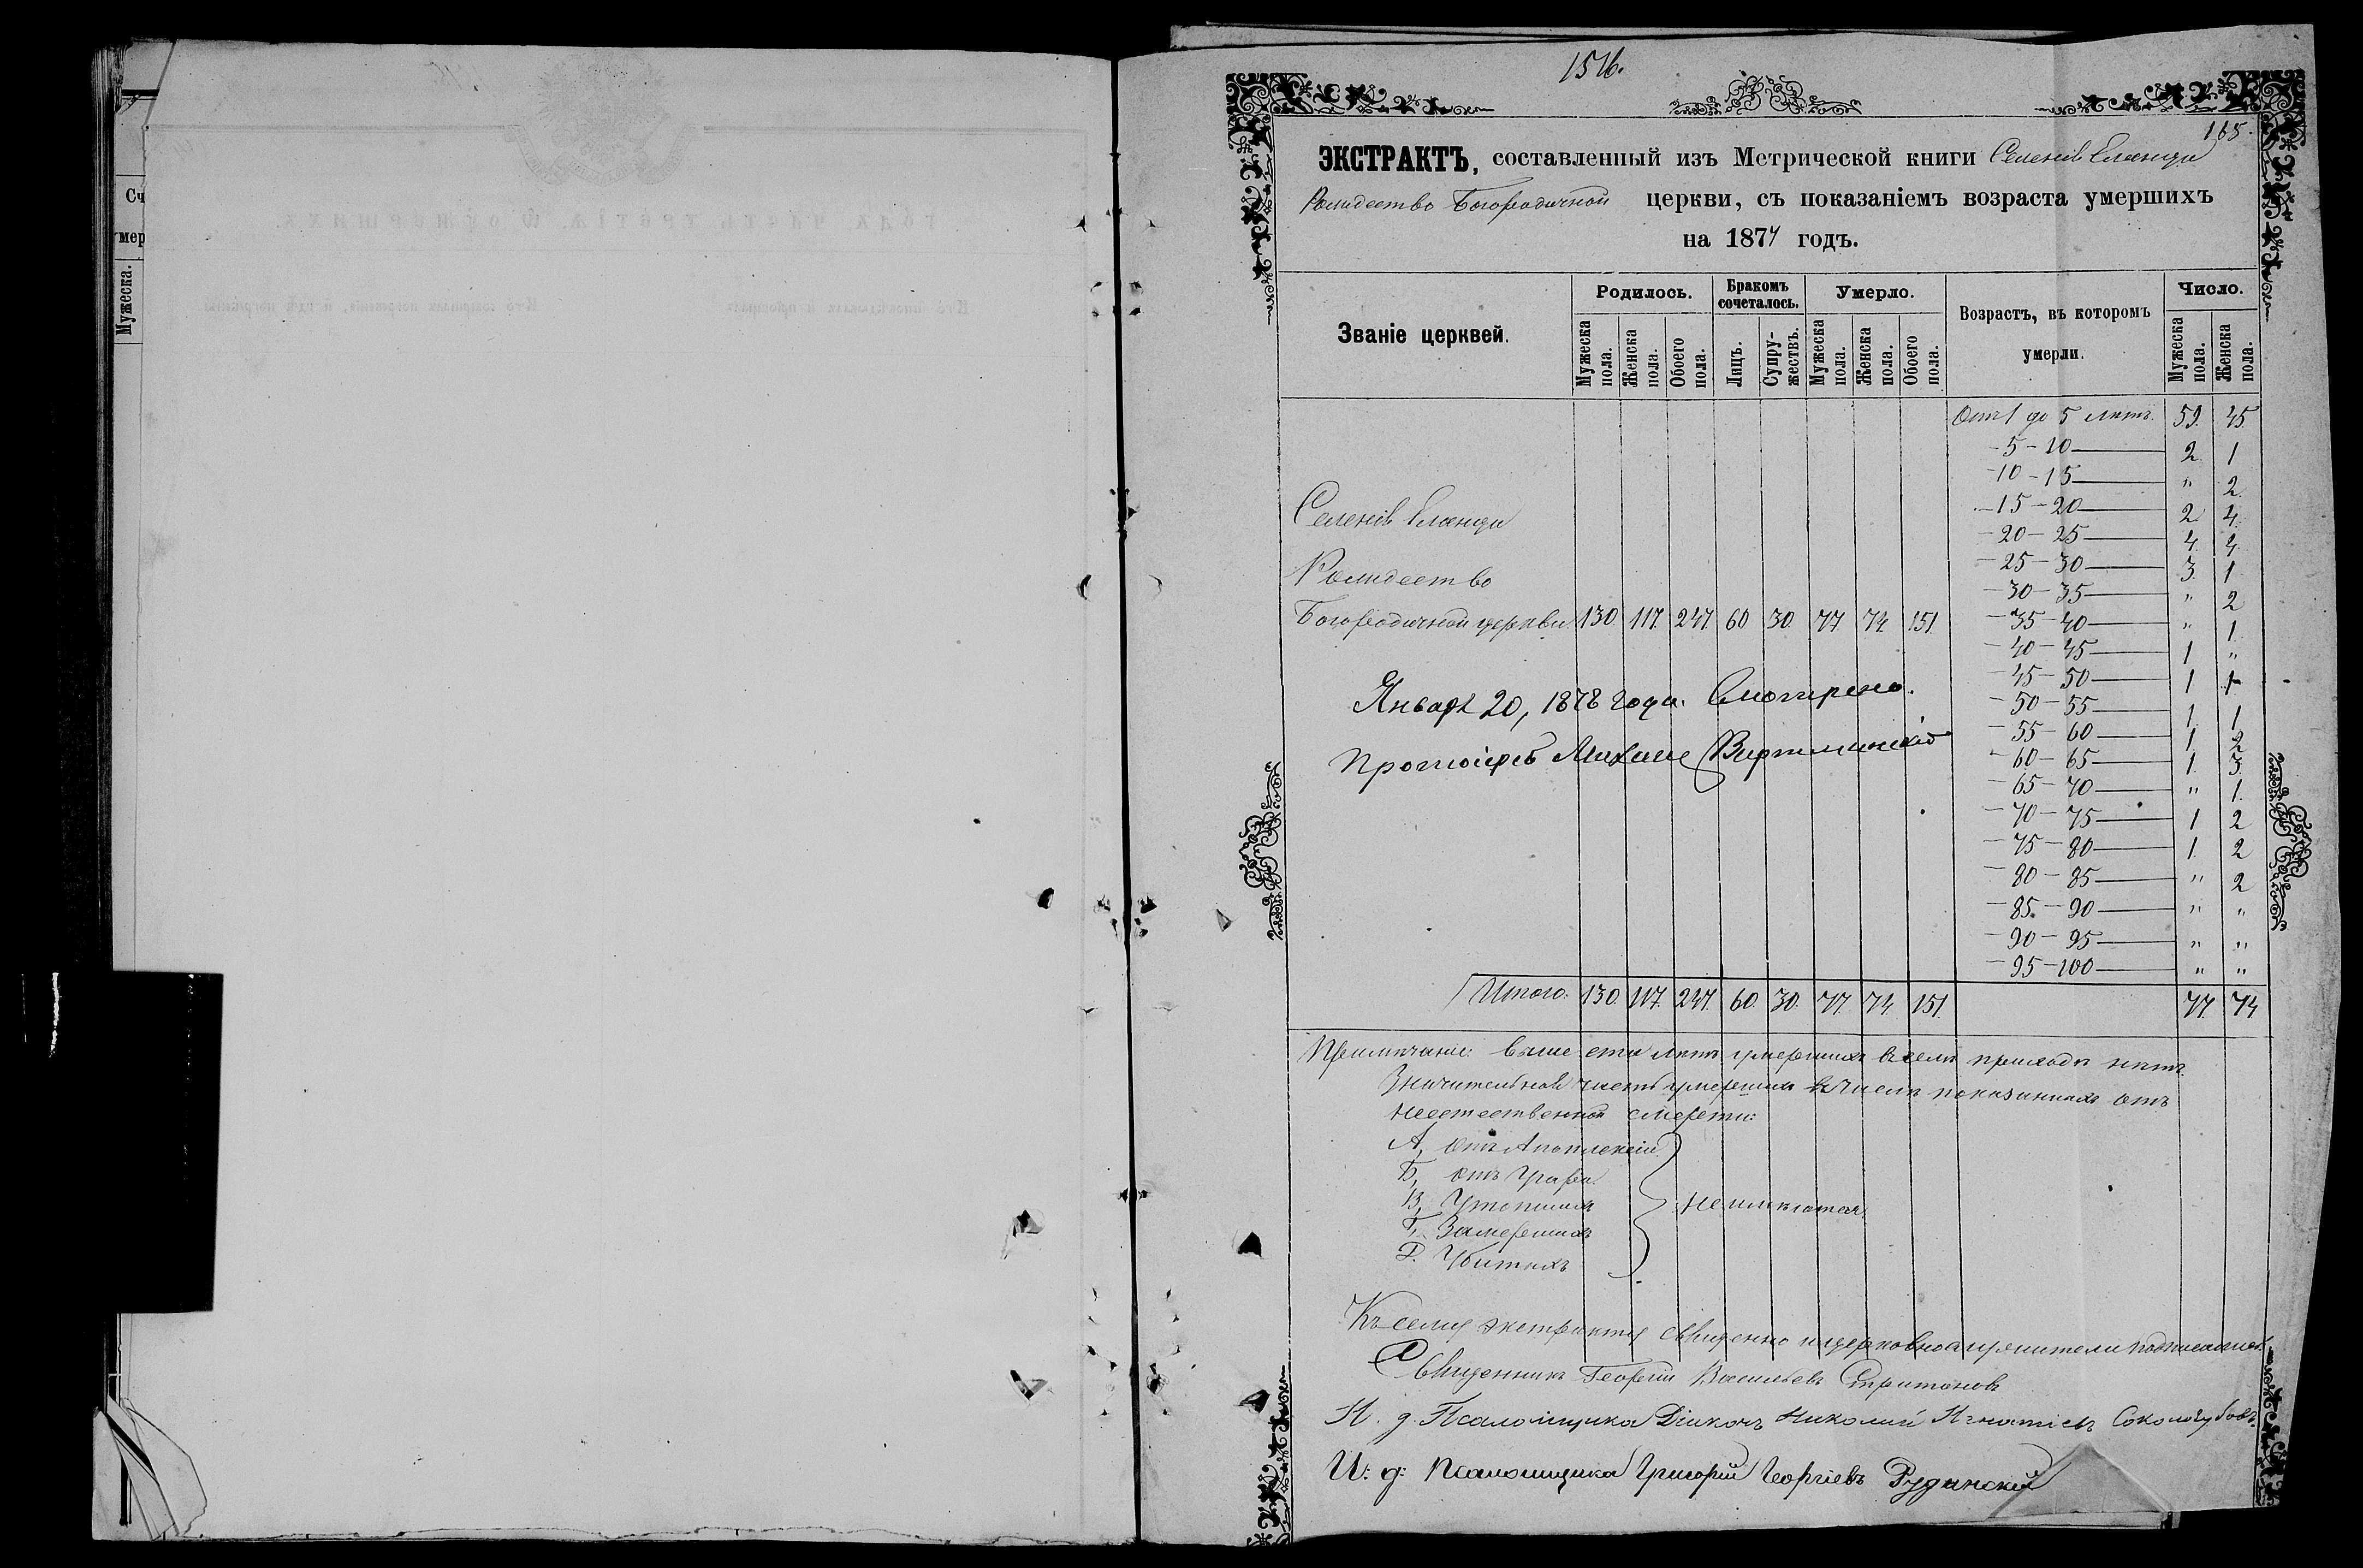 1516.
165.
ЭКСТРАКТЪ, составленный изъ Метрической книги Селенія Еланци
Рождество Богородичной церкви, съ показаніемъ возраста умершихъ
на 1877 годъ.
Званіе церквей.
Родилось.
Бракомъ сочеталось.
Умерло.
Возрастъ, въ которомъ умерли.
Число.
Мужеска пола.
Женска пола.
Обоего пола.
Лицъ.
Супружествъ.
Мужеска пола.
Женска пола.
Обоего пола.
Мужеска пола.
Женска пола.
Отъ 1 до 5 лѣтъ. 59. 45.
— 5 – 10 — 2. 1
— 10 – 15 — " 2.
— 15 – 20 — 2 4.
— 20 – 25 — 4. 4.
— 25 – 30 — 3. 1
— 30 – 35 — " 2
— 35 – 40 — " 1.
— 40 – 45 — 1 "
— 45 – 50 — 1 1
— 50 – 55 — 1. 1
— 55 – 60 — 1 2
— 60 – 65 — 1. 3.
— 65 – 70 — " 1.
— 70 – 75 — 1 2
— 75 – 80 — 1. 2
— 80 – 85 — " 2
— 85 – 90 — " "
— 90 – 95 — " "
— 95 – 100 — " "
Селенія Еланци
Рождество
Богородичной церкви. 130. 117. 247. 60 30. 77 74. 151.
Января 20, 1878 года. Смотрено.
Протоіерей Михаилъ
Итого. 130. 117. 247. 60. 30. 77. 74 151. 77. 74
Примѣчаніе: выше ста лѣтъ умершихъ въ семъ приходѣ нѣтъ.
Значительная часть умершихъ въ числѣ показанныхъ отъ
неестественной смерти:
А, Отъ Апоплексіи
Б, Отъ Угара
В, Утопшихъ
не имѣются.
Г, Замерзшихъ
Д. Убитыхъ
Къ сему экстракту священно и церковнослужители подписались
Священникъ Георгій Васильевъ
И. д. Псаломщика Діаконъ Николай Игнатіевъ
И: д: Псаломщика Григорій Георгіевъ Рудинскій
Сч
умер
Мужеска.